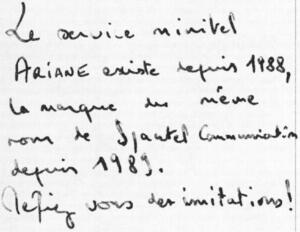 Le service minitel
ARIANE existe depuis 1988,
la marque du même
nom de Spautel Communication
depuis 1989.
Méfiez vous des imitations!